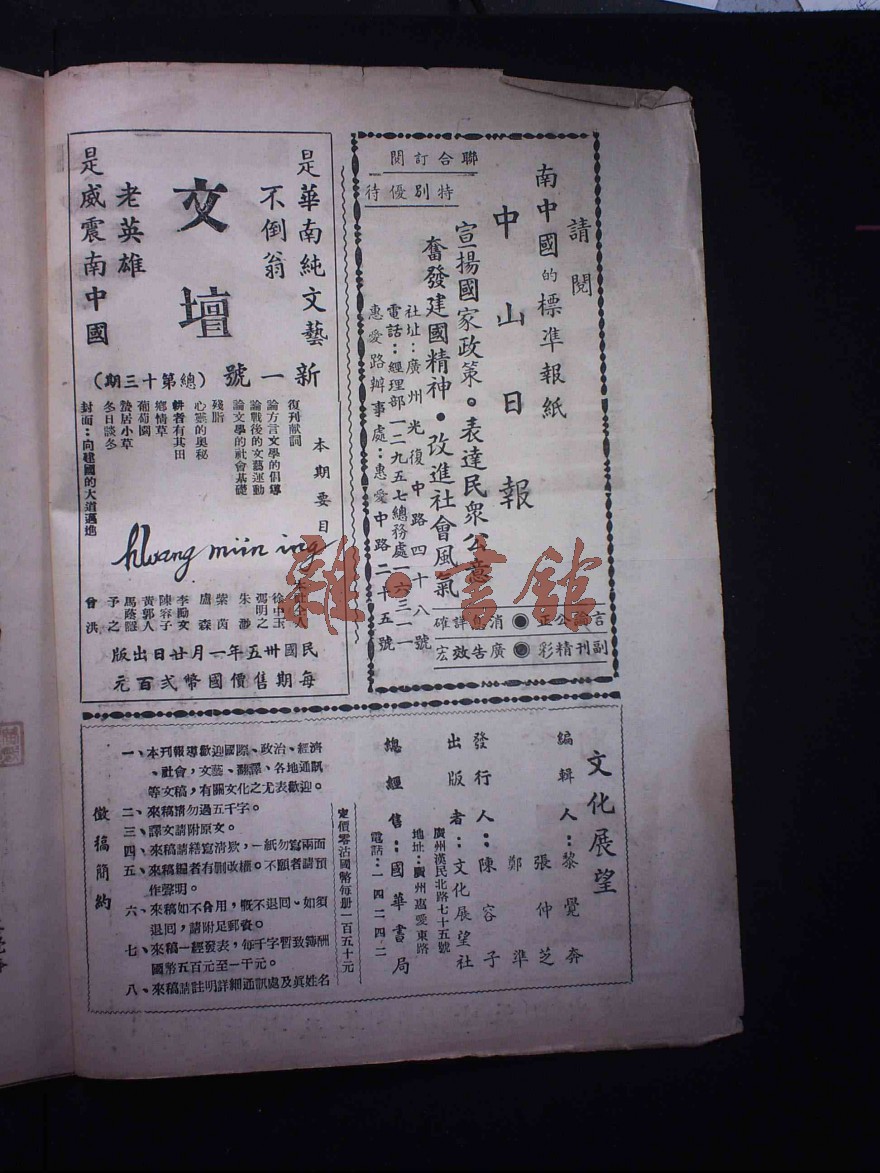 請閱
南中國的標準報紙
中山日報
宣揚國家政策。表達民衆公意
奮發建國精神。改進社會風氣
社址:廣州光復中路四十八號
電話:經理部一二九五七總務處一六三一一
惠愛路辦事處:惠愛中路二十五號
聯合訂閱
特別優待
言論公正●消息詳確
副刊精彩●廣告效宏
是華南純文藝
不倒翁
文壇
老英雄
是威震南中國
新一號(總第十三期)
本期要目
復刊献詞 本社仝人
論方言文學的倡導 徐中玉
論戰後的文藝運動 馮明之
論文學的社會基礎 朱渺
殘脂 紫茵
心靈的奧秘 盧森
耕者有其田 李勵文
鄉情草 陳容子
葡萄園 黃郭人
蟄居小草 馬蔭隱
冬日談冬 予之
封面:向建國的大道邁進 曾洪
hwang miin ing
民國卅五年一月廿日出版
每期售價國幣弍百元
文化展望
編輯人:黎覺奔
張仲芝
鄭準
發行人:陳容子
出版者:文化展望社
廣州漢民北路七十五號
地址:廣州惠愛東路
總經售:國華書局
電話:一四二四二
定價零沽國幣每册一百五十元
徵稿簡約
一、本刊報導歡迎國際、政治、經濟
、社會,文藝、翻譯、各地通訊
等文稿,有關文化之尤表歡迎。
二、來稿請勿過五千字。
三、譯文請附原文。
四、來稿請繕寫清楚,一紙勿寫兩面
五、來稿編者有刪改權。不願者請預
作聲明。
六、來稿如不合用,慨不退回、如須
退回,請附足郵資。
七、來稿一經發表,每千字暫致薄酬
國幣五百元至一千元。
八、來稿請註明詳細通訊處及眞姓名
雜·書館